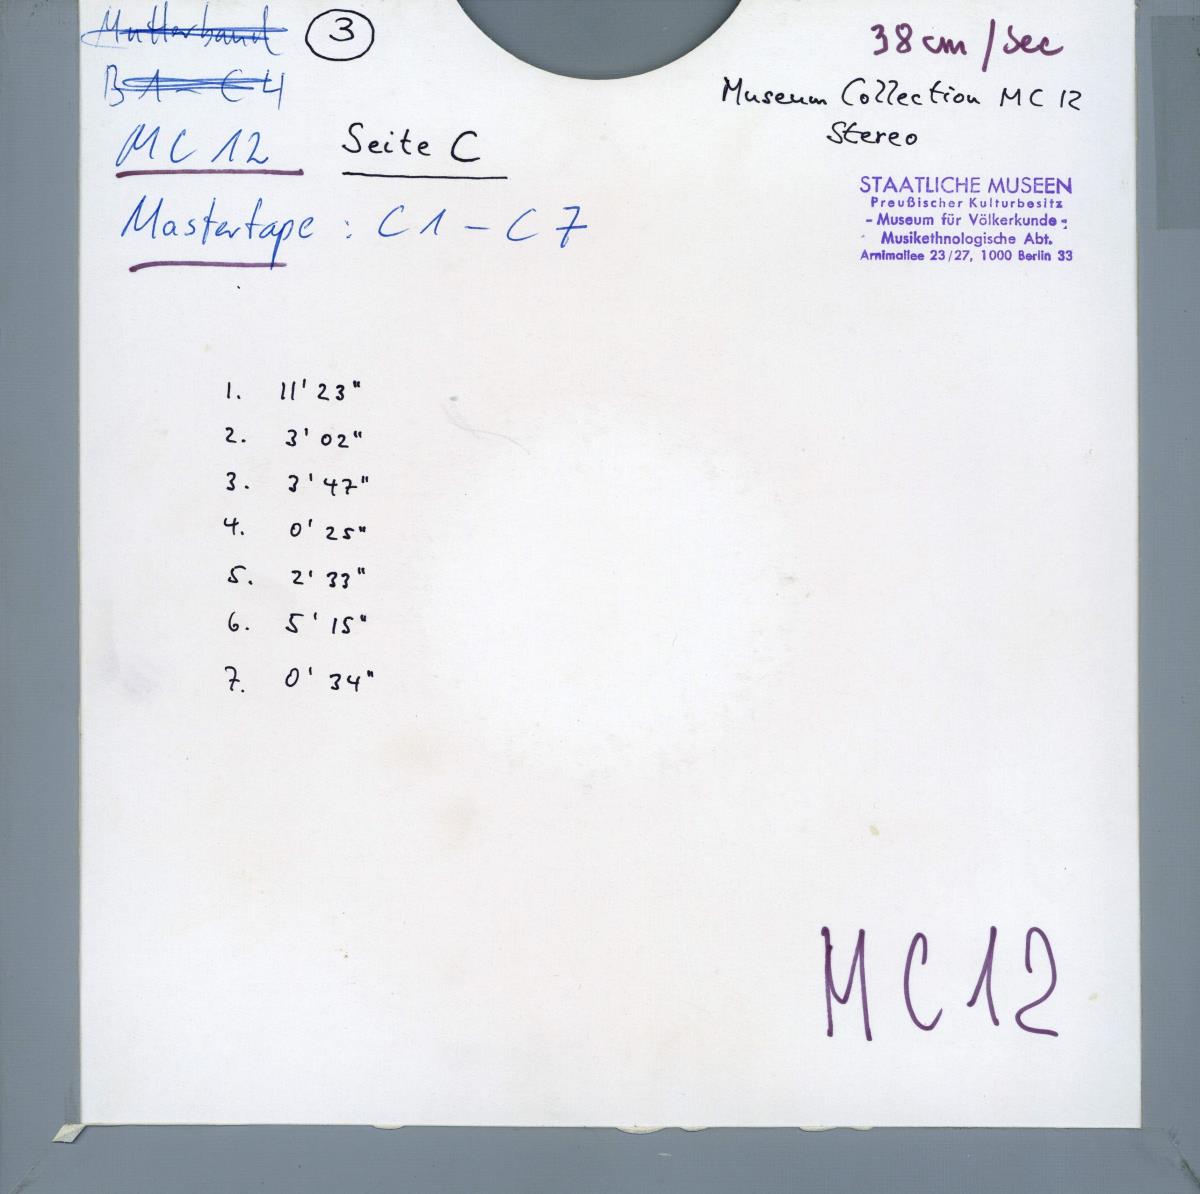 Mutterband 3
B1 - C4
MC 12 Seite C
Mastertape : C1 - C7
38 cm/sec
Museum Collection MC 12
Stereo
STAATLICHE MUSEEN
Preußischer Kulturbesitz
- Museum für Völkerkunde -
Musikethnologische Abt.
Arnimallee 23/27, 1000 Berlin 33
1. 11' 23"
2. 3' 02"
3. 3' 47"
4. 0' 25"
5. 2' 33"
6. 5' 15"
7. 0' 34"
MC12